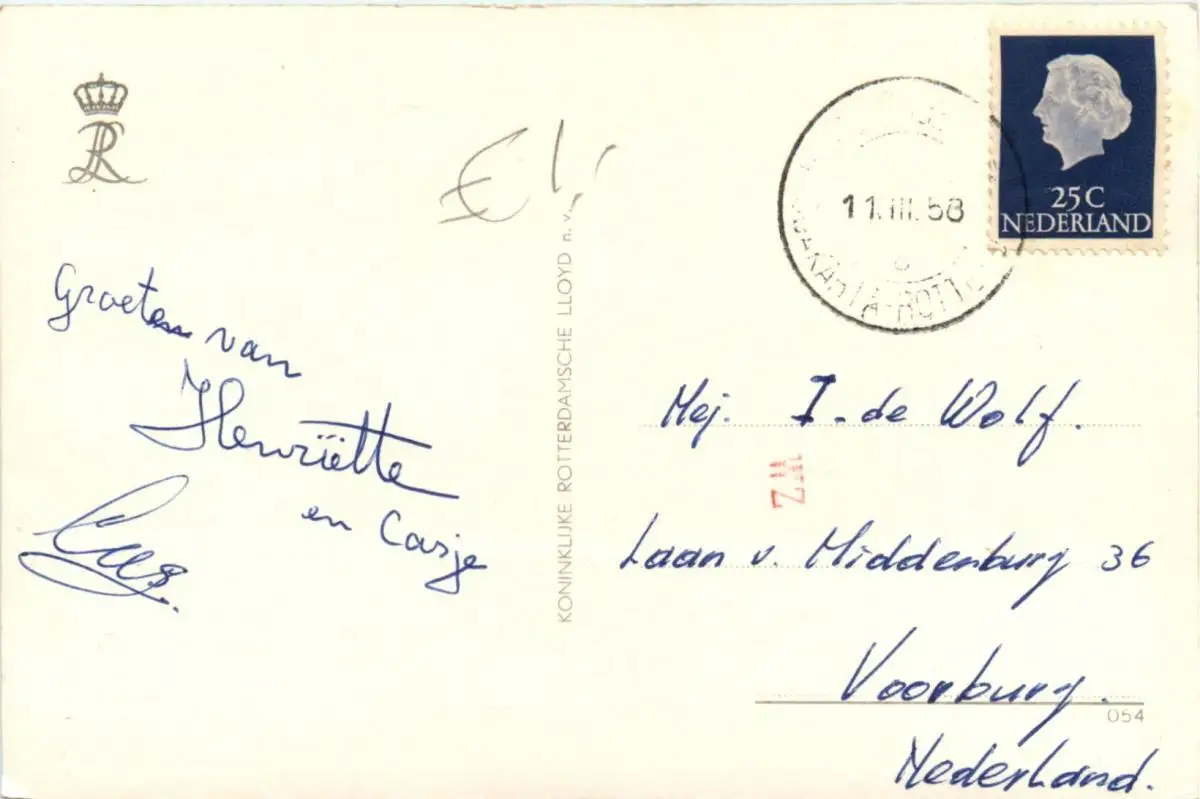 Groeten van
Henriëtte
en Casje
Cees.
KONINKLIJKE ROTTERDAMSCHE LLOYD n.v.
11.III.58
25C
NEDERLAND
Mej. I. de Wolf.
ZM
Laan v. Middenburg 36
Voorburg.
054
Nederland.